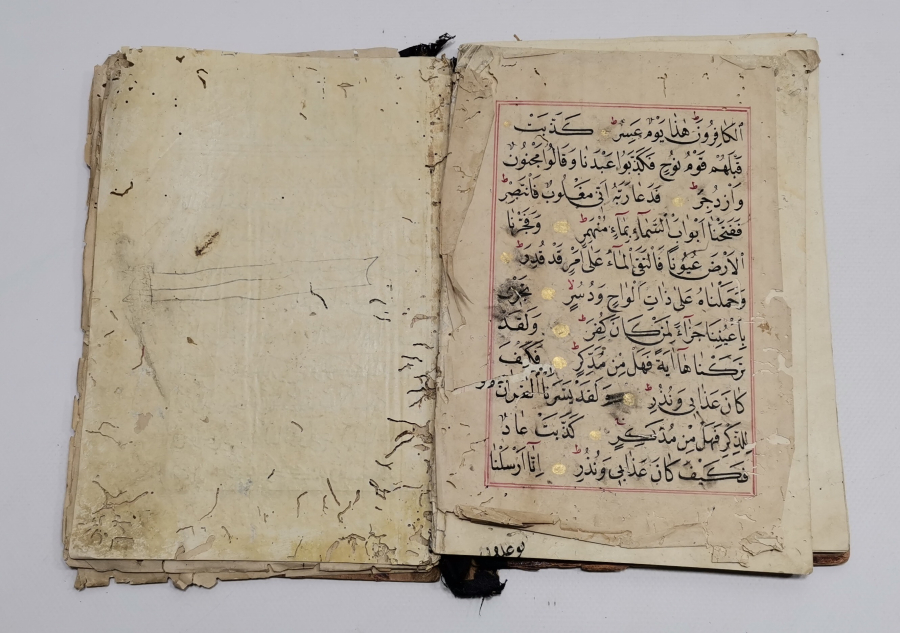 الكَافِرُونَ هٰذَا يَوْمٌ عَسِرٌ كَذَّبَتْ
قَبْلَهُمْ قَوْمُ نُوحٍ فَكَذَّبُوا عَبْدَنَا وَقَالُوا مَجْنُونٌ
وَازْدُجِرَ فَدَعَا رَبَّهُ أَنِّي مَغْلُوبٌ فَانْتَصِرْ
فَفَتَحْنَا أَبْوَابَ السَّمَآءِ بِمَآءٍ مُنْهَمِرٍ وَفَجَّرْنَا
الْأَرْضَ عُيُونًا فَالْتَقَى الْمَآءُ عَلَى أَمْرٍ قَدْ قُدِرَ
وَحَمَلْنَاهُ عَلَى ذَاتِ أَلْوَاحٍ وَدُسُرٍ تَجْرِي
بِأَعْيُنِنَا جَزَآءً لِمَنْ كَانَ كُفِرَ وَلَقَدْ
تَرَكْنَاهَا آيَةً فَهَلْ مِنْ مُدَّكِرٍ فَكَيْفَ
كَانَ عَذَابِي وَنُذُرِ وَلَقَدْ يَسَّرْنَا الْقُرْآنَ
لِلذِّكْرِ فَهَلْ مِنْ مُدَّكِرٍ كَذَّبَتْ عَادٌ
فَكَيْفَ كَانَ عَذَابِي وَنُذُرِ إِنَّا أَرْسَلْنَا